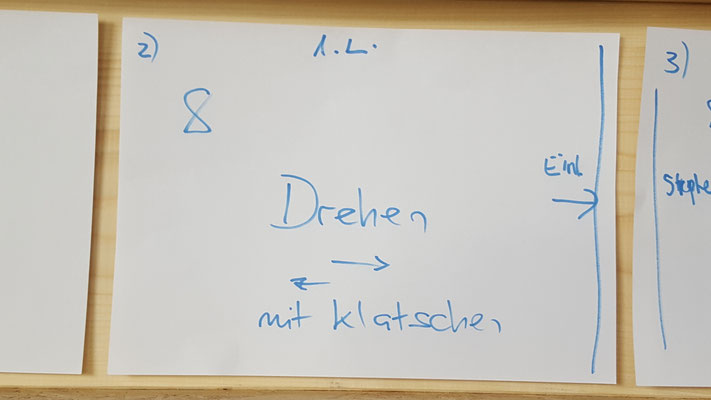 2) 1.L.
8
Einl
→
Drehen
→
←
mit klatschen
3)